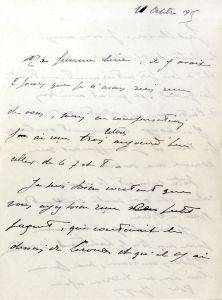 Octobre 1915
Ma femme chérie, il y avait
2 jours que je n'avais rien reçu
de vous, mais en compensation
j'en ai reçu trois lettres aujourd'hui
celles du 6 7 et 8.
Je suis bien content que
vous ayez bien reçu petit
paquet, qui contenait les
dessins de et qu'il n'y ai